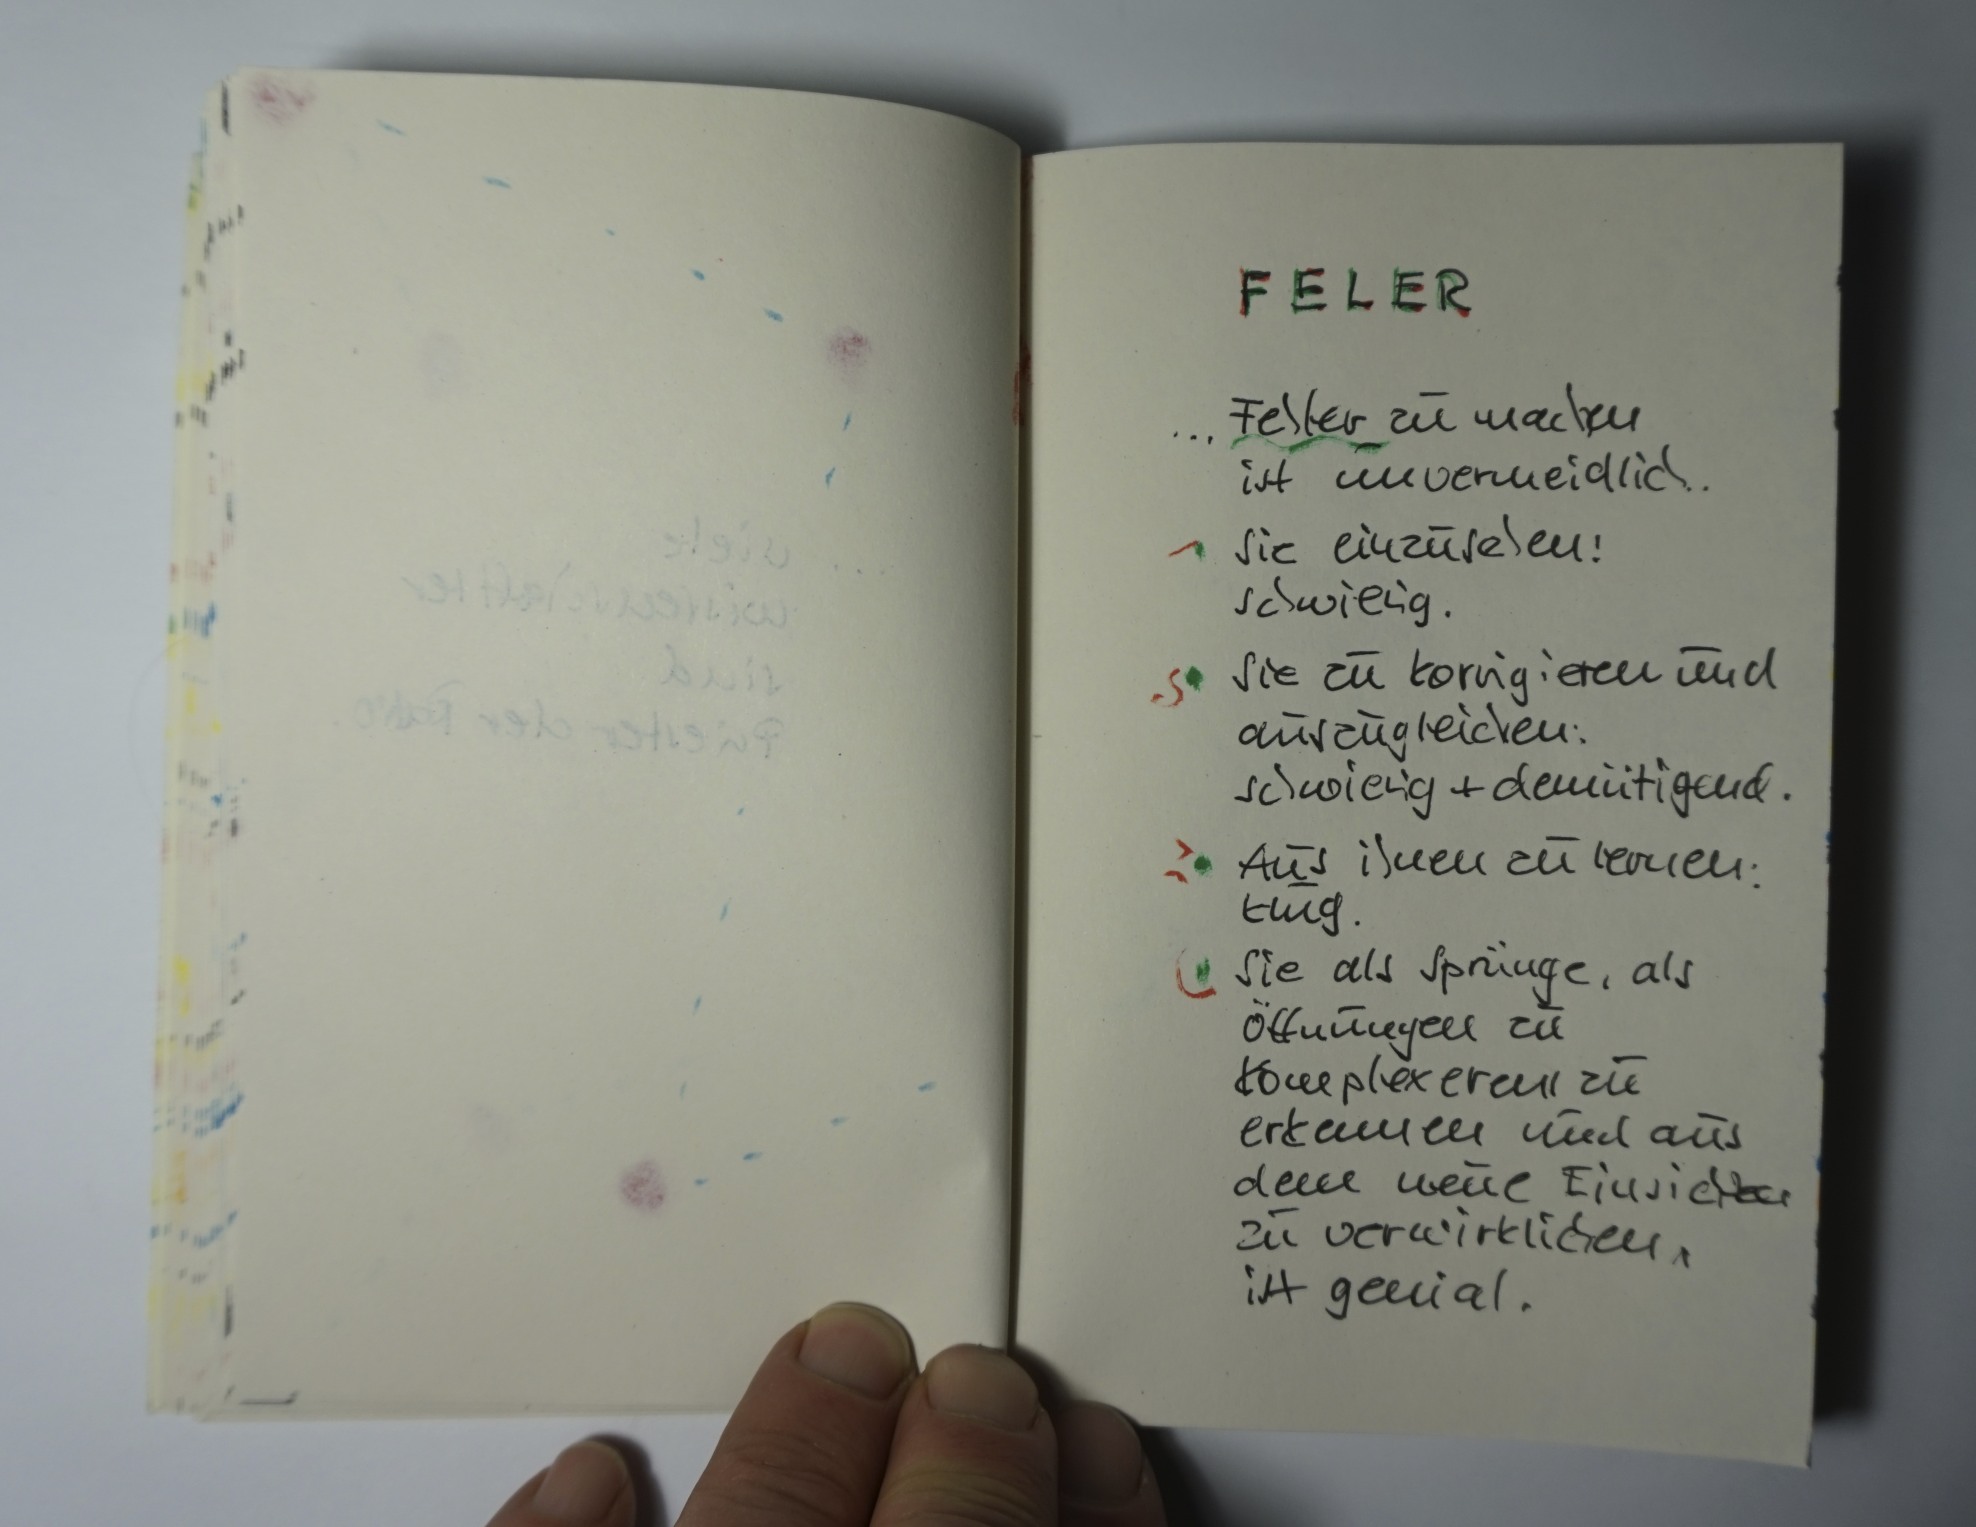 ... viele
wissenschaftler
sind
Priester der Ratio.
FELER
... Fehler zu machen
ist unvermeidlich.
Sie einzusehen:
schwierig.
Sie zu korrigieren und
auszugleichen:
schwierig + demütigend.
Aus ihnen zu lernen:
klug.
Sie als Sprünge, als
Öffnungen zu
komplexerem zu
erkennen und aus
dem neue Einsichten
zu verwirklichen,
ist genial.